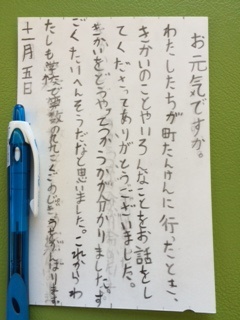 お元気ですか。
わたしたちが町たんけんに行ったときに、
きかいのことやいろんなことをお話をし
てくださってありがとうございました。
きかいをどうやってつかうかが分かりました。す
ごくたいへんそうだなと思いました。これからわ
たしも学校で算数の九九をがんばります。
十一月五日